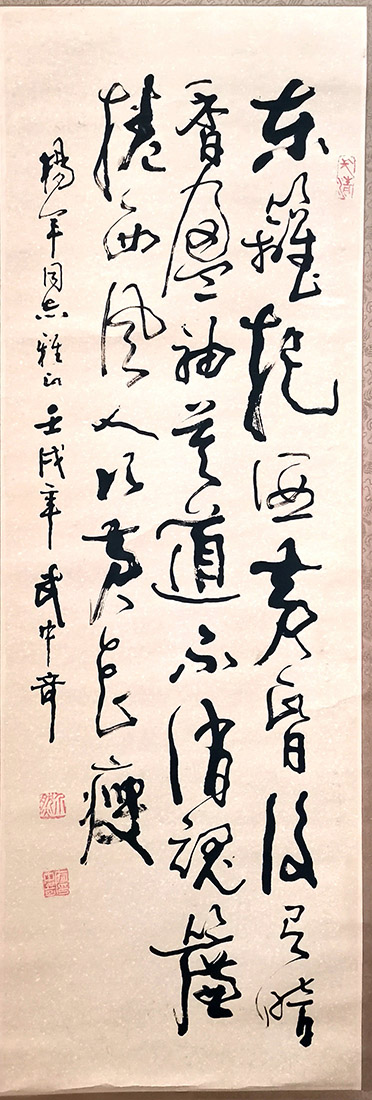 东篱把酒黄昏后有暗
香盈袖莫道不消魂簾
捲西风人比黄花瘦
楊军同志雅正 壬戌年 武中奇